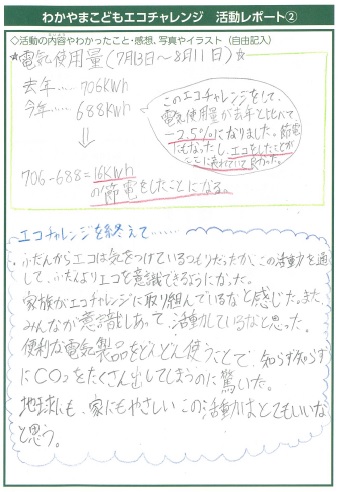 わかやまこどもエコチャレンジ 活動レポート②
◇活動の内容やわかったこと・感想、写真やイラスト（自由記入）
☆電気使用量（7月13日～8月11日）☆
去年…… 706kWh
今年…… 688kWh
706-688=16kWh
の節電をしたことになる。
このエコチャレンジをして、
電気使用量が去年と比べて
-2.5%になりました。節電
にもなったし、エコをしたことが
良かった。
エコチャレンジを終えて……
・ふだんからエコは気をつけているつもりだったが、この活動を通
して、ふだんよりエコを意識できるようになった。
家族がエコチャレンジに取り組んでいるなと感じた。また、
みんなが意識しあって、活動しているなと思った。
便利な電気製品をどんどん使うことで、知らず知らず
にCO2をたくさん出してしまうのに驚いた。
地球にも、家にもやさしいこの活動はとてもいいな
と思う。